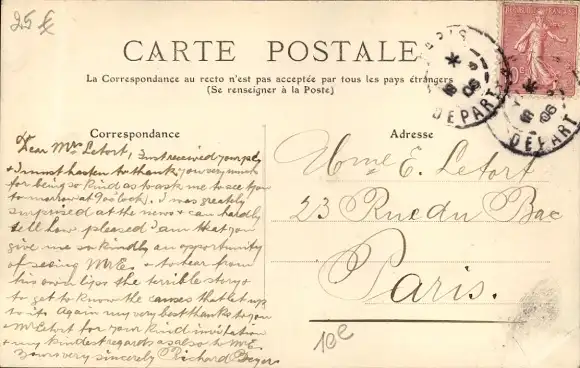 25 £
CARTE POSTALE
La Correspondance au recto n'est pas acceptée par tous les pays étrangers
(Se renseigner à la Poste)
PARIS
DEPART
06
DEPART
06
Correspondance
Adresse
Dear Mrs Letort, I just received your
& I must hasten to thank you very much
for being so kind as to ask me to see you
tomorrow at 9 o'clock. I was greatly
surprised at the news & can hardly
tell how pleased I am that you
give me so kindly an opportunity
of seeing Mr E. & to hear from
his own lips the terrible story &
to get to know the causes that led up
to it. Again my very best thanks to you
& Mr Letort for your kind invitation
& my kindest regards as also to Mr E.
Yours very sincerely Richard
Mme E. Letort
23 Rue du Bac
Paris.